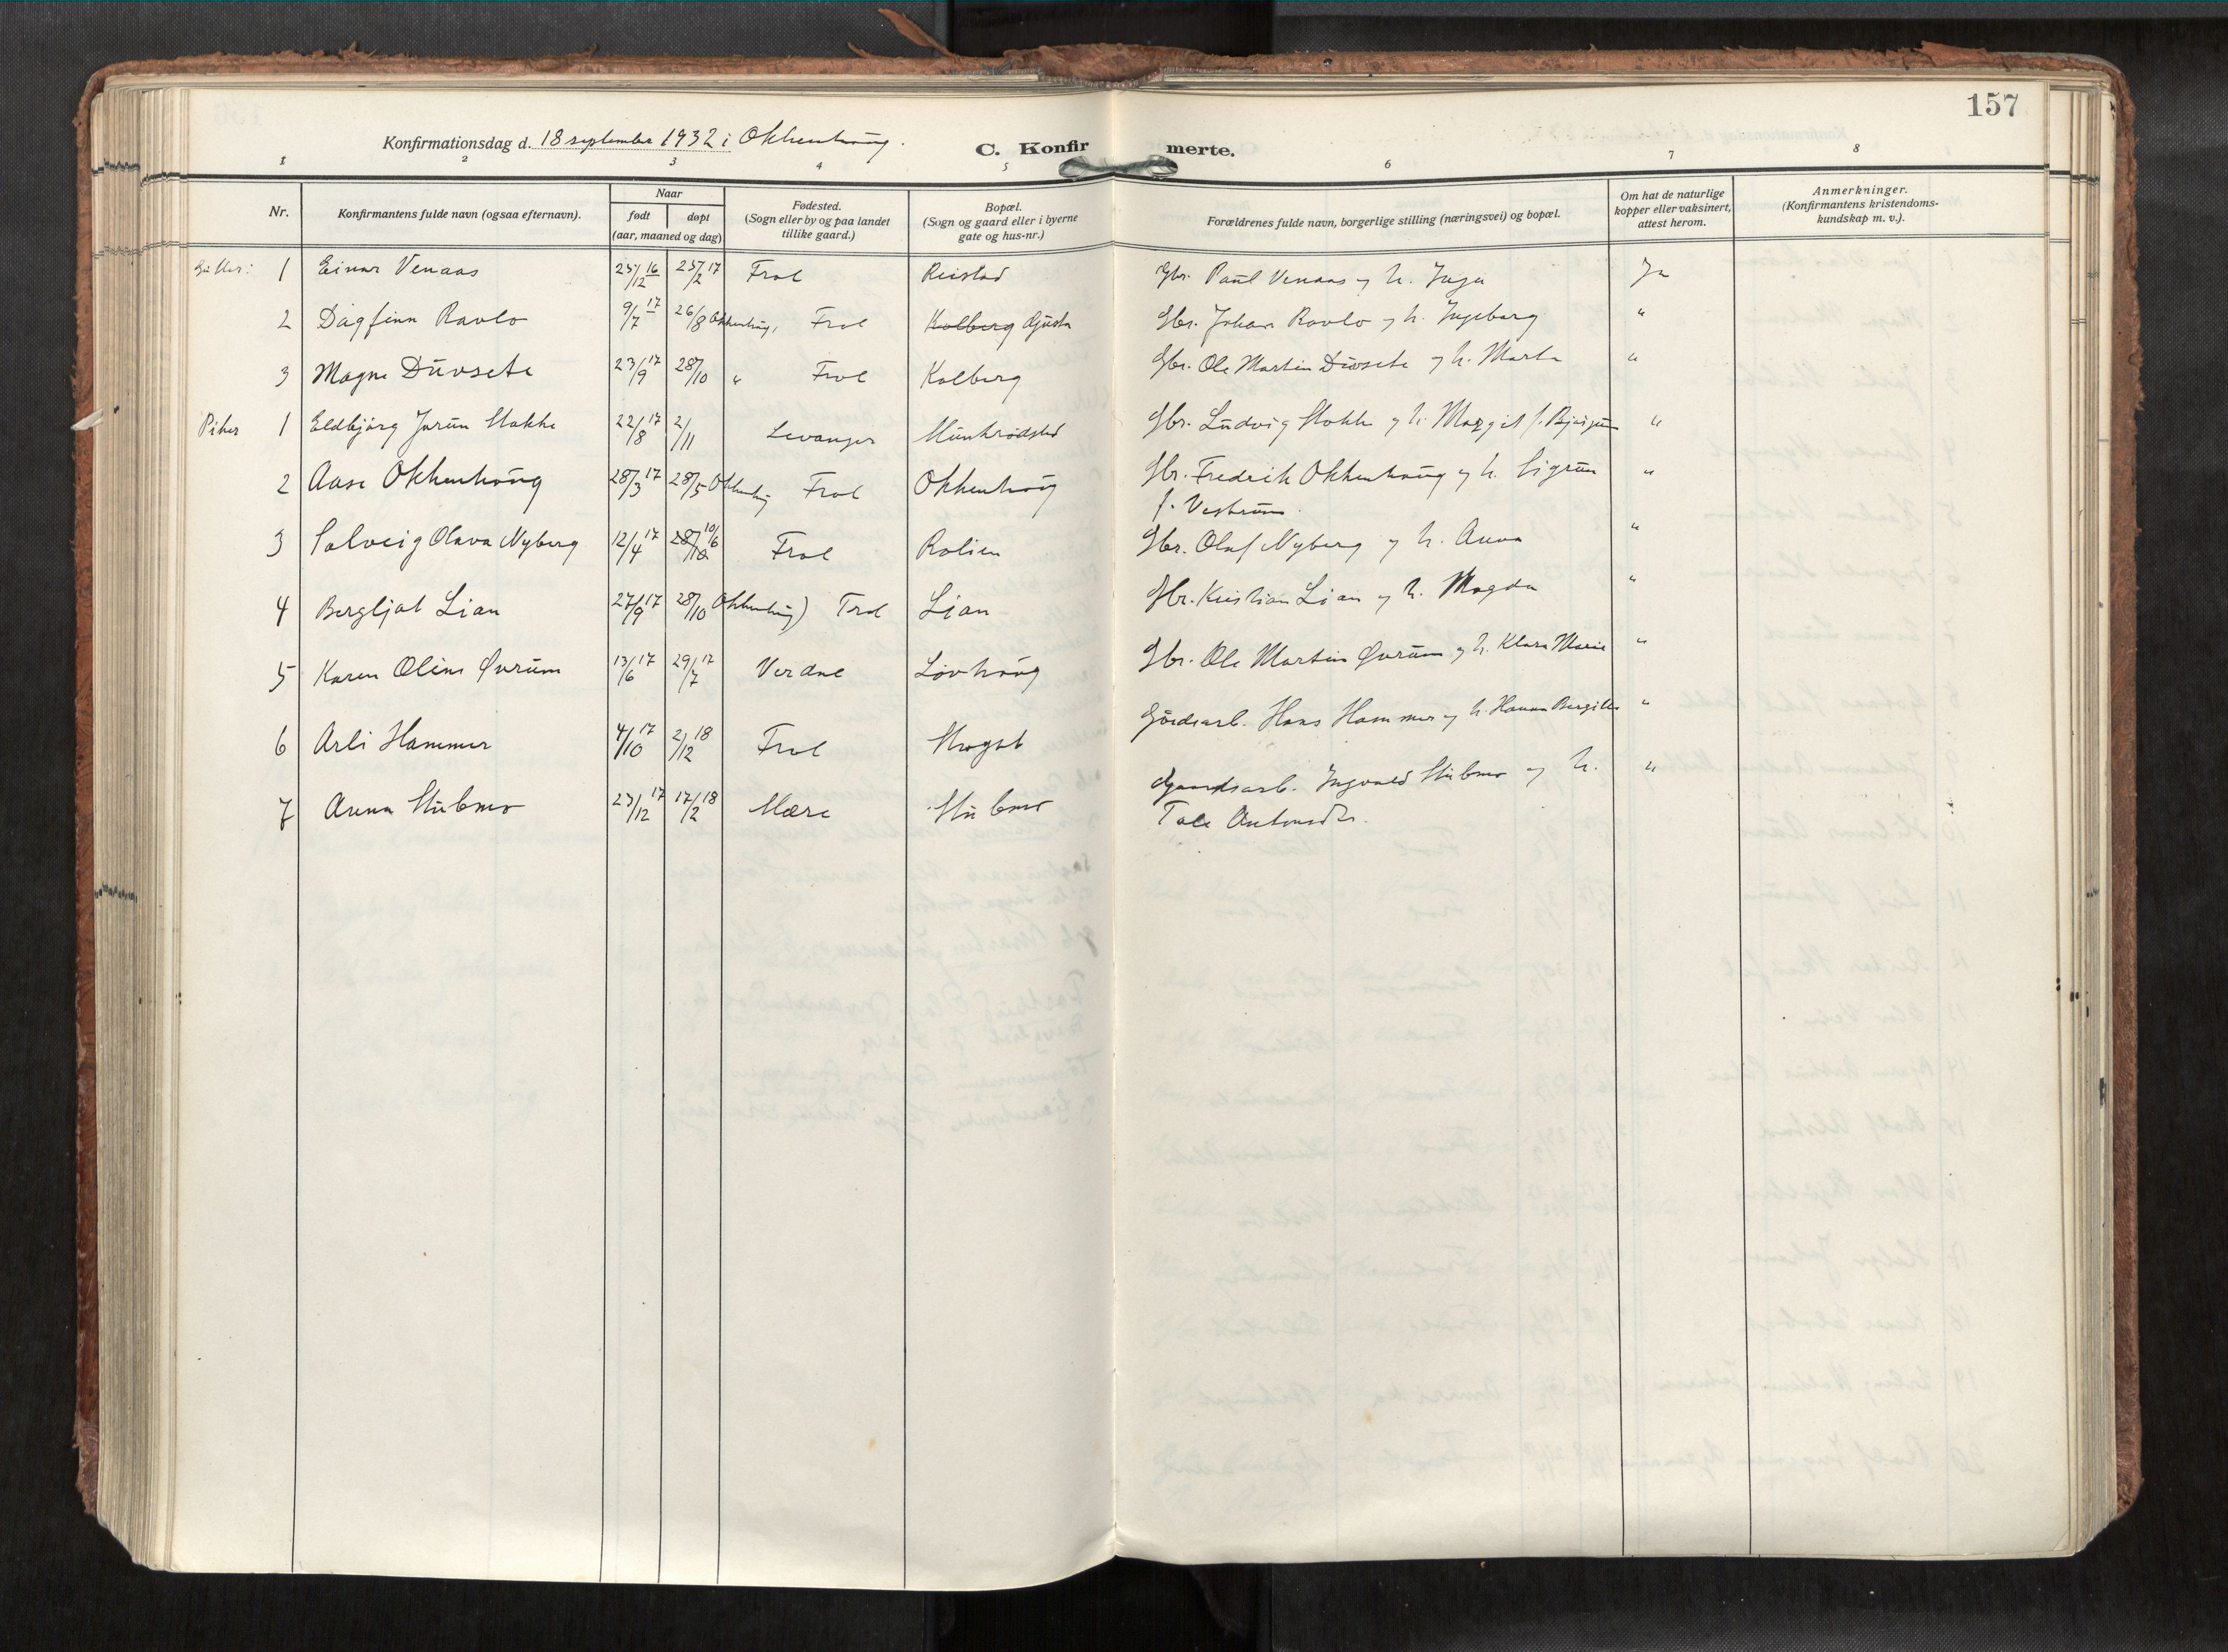 157
Konfirmationsdag d. 18 september 1932 i Okkenhaug.
C. Konfirmerte.
1 2 3 4 5 6 7 8
Nr.
Konfirmantens fulde navn (ogsaa efternavn).
Naar
født døpt
(aar, maaned og dag)
Fødested.
(Sogn eller by og paa landet
tillike gaard.)
Bopæl.
(Sogn og gaard eller i byerne
gate og hus-nr.)
Forældrenes fulde navn, borgerlige stilling (næringsvei) og bopæl.
Om hat de naturlige
kopper eller vaksinert,
attest herom.
Anmerkninger.
(Konfirmantens kristendoms-
kundskap m. v.).
Gutter: 1 Einar Venaas 25/12 16 25/2 17 Frol Reistad Gbr. Paul Venaas og h. Inga Ja
2 Dagfinn Ravlo 9/7 17 26/8 Okkenhaug, Frol Kolberg Gjusta Gbr. Johan Ravlo og h. Ingeborg "
3 Magne Duvsete 23/9 17 28/10 " Frol Kolberg Gbr. Ole Martin Duvsete og h. Marta "
Piker 1 Eldbjørg Jorun Stokke 22/8 17 2/11 Levanger Munkrødstad Gbr. Ludvig Stokke og h. Margit f. "
2 Aase Okkenhaug 28/3 17 28/5 Okkenhaug Frol Okkenhaug Gbr. Fredrik Okkenhaug og h. Sigrun "
f. Vestrum.
3 Solveig Olava Nyberg 12/4 17 28/10 10/6 Frol Rolien Gbr. Olaf Nyberg og h. Anna "
4 Bergljot Lian 27/9 17 28/10 Okkenhaug) Frol Lian Gbr. Kristian Lian og h. Magda "
5 Karen Oline Ørum 13/6 17 29/7 17 Verdal Løvhaug Gbr. Ole Martin og h. Klara Marie "
6 Arli Hammer 4/10 17 2/12 18 Frol Skogset Gårdsarb. Hans Hammer og h. Hanna Bergitte "
7 Anna Stubmo 23/12 17 17/2 18 Mære Stubmo Gaardsarb. Ingvald Stubmo og h. "
Tale Antonsdtr.